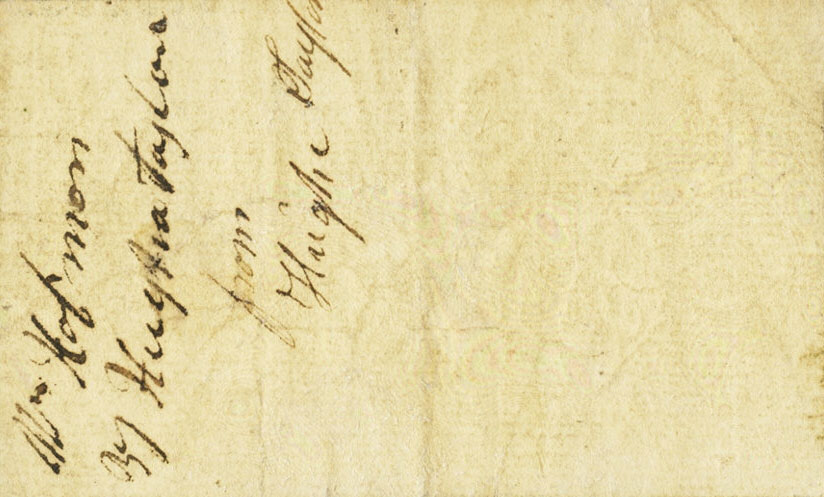 Mr Hofmon
By Hugha Taylor
from
Hughe Taylor